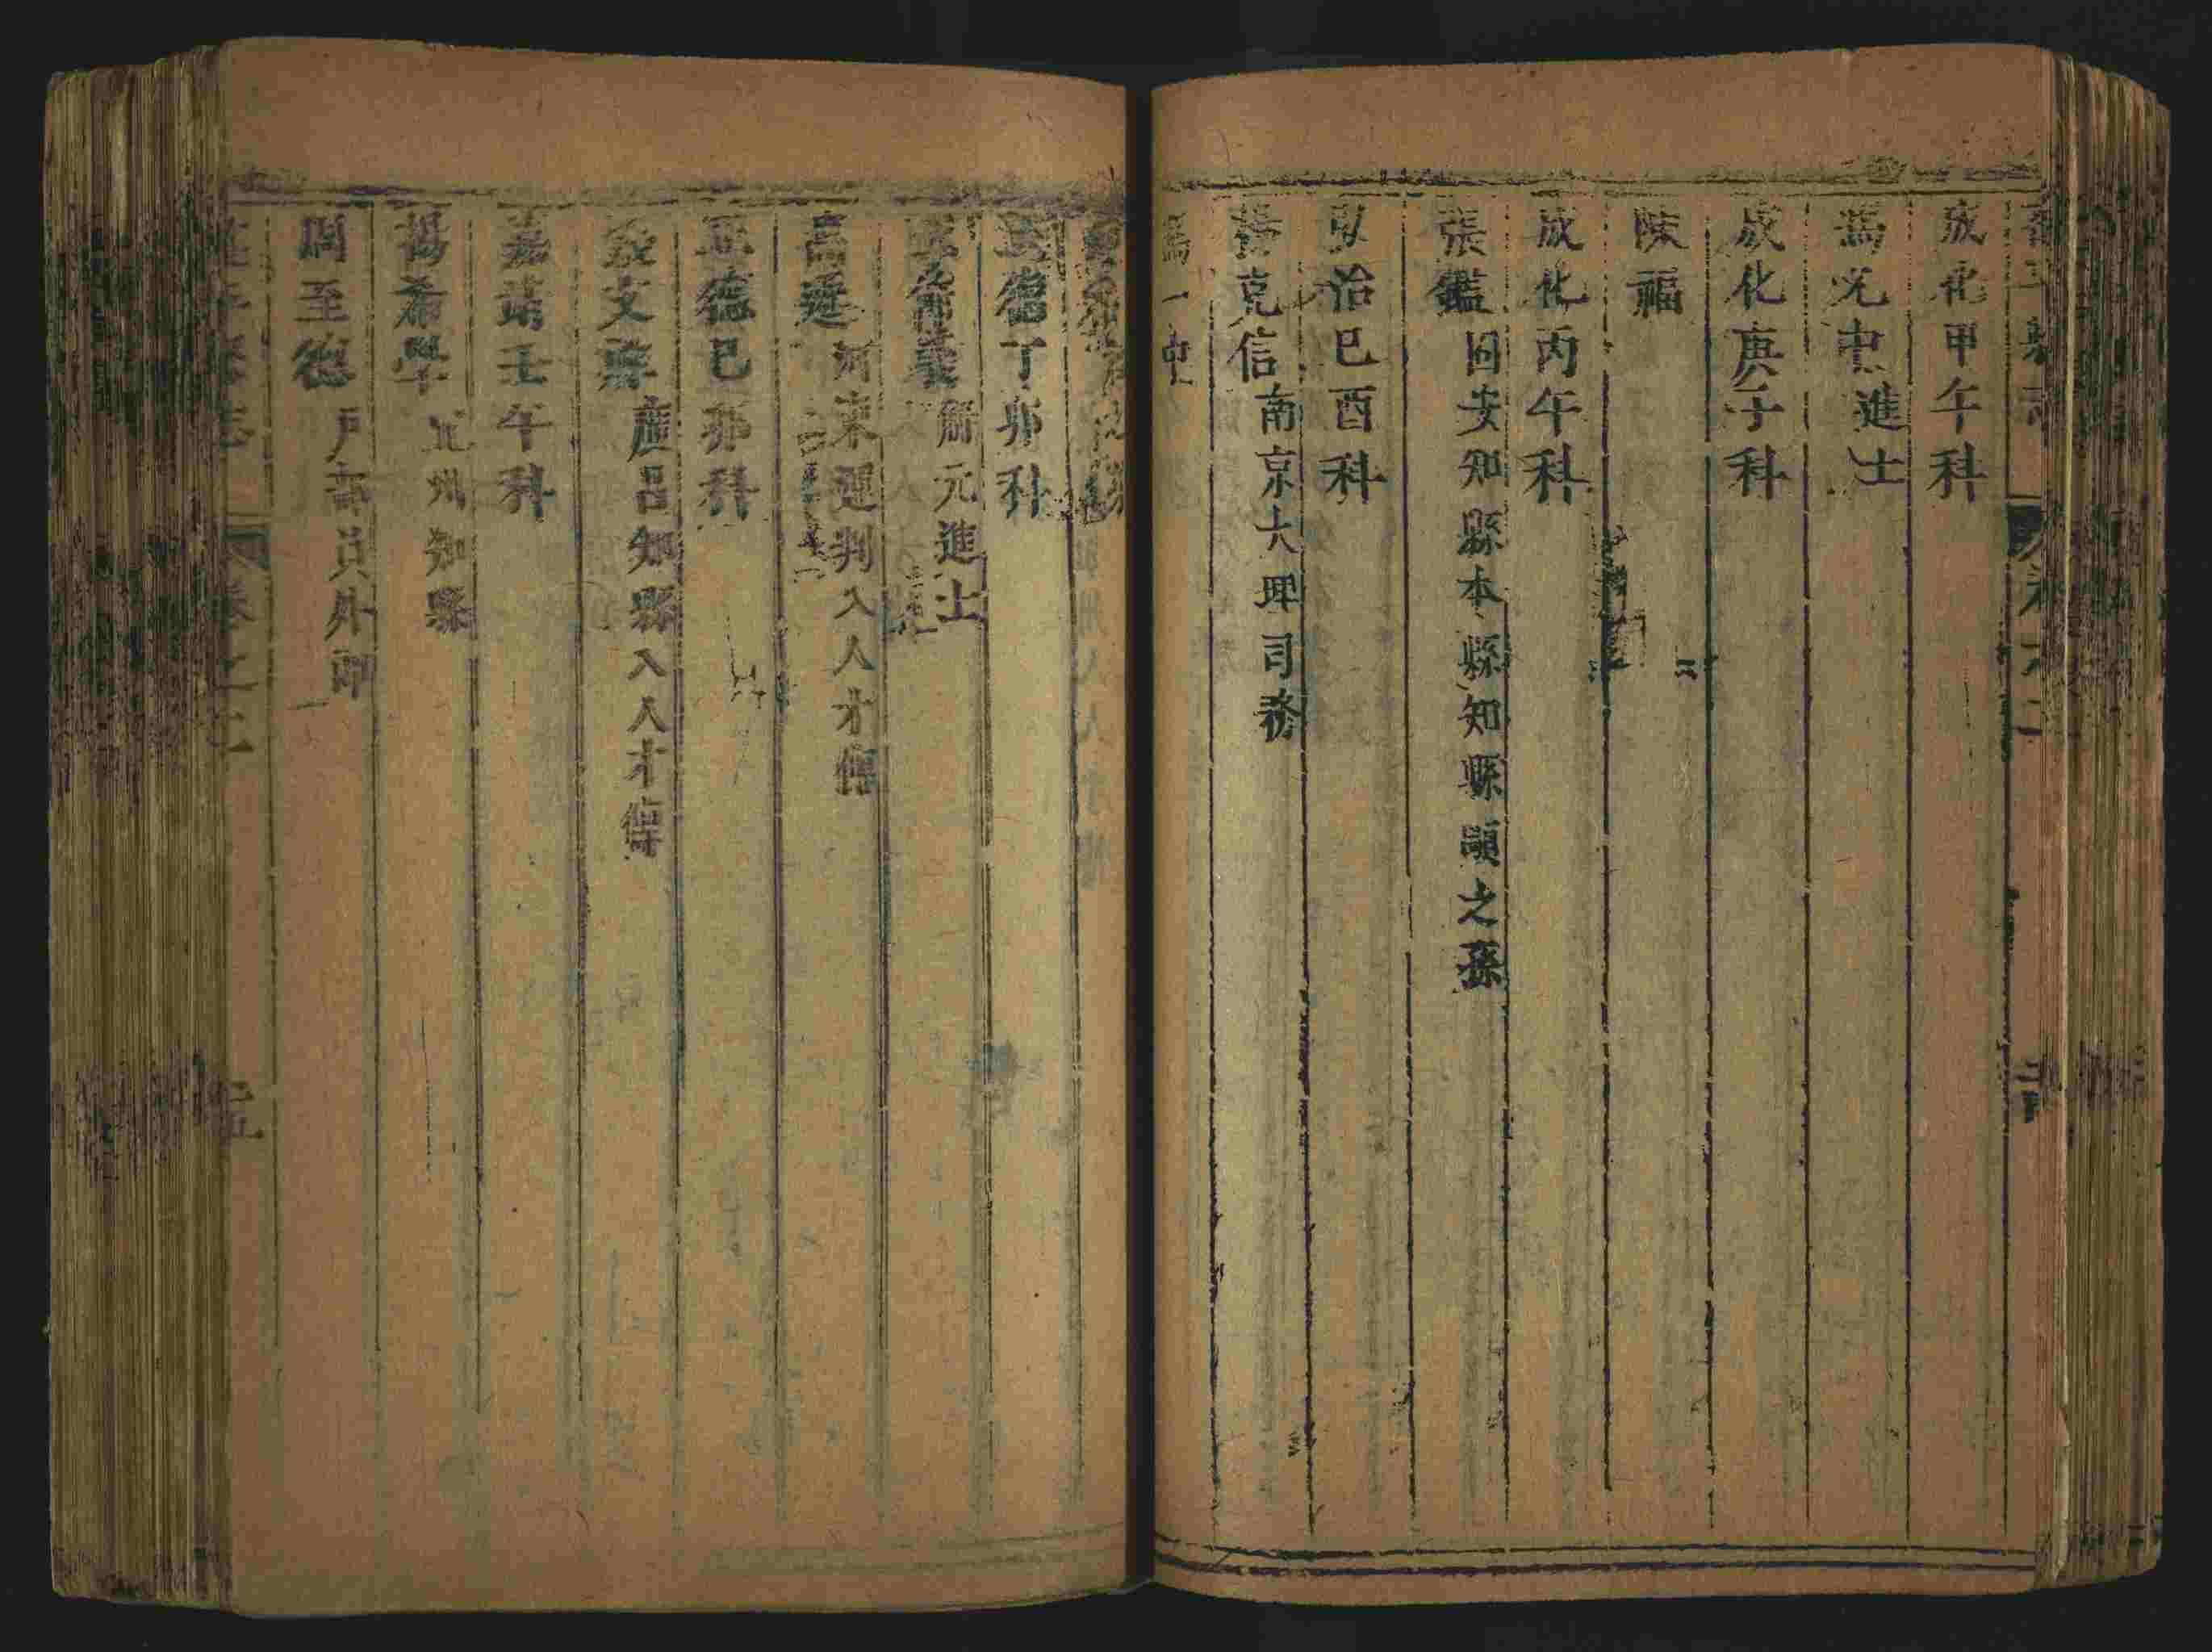 成化甲午科
馮允中 進士
成化庚子科
陳福
成化丙午科
張鑑 固安知縣本縣知縣顯之孫
弘治己酉科
張克信 南京大理司務
馮一中
正德丁卯科
解元進士
高遷 河東運判入人才傳
正德己卯科
文 廣昌知縣入人才傳
嘉靖壬午科
楊希學 州知縣
周至德 戶部員外郎
卷之二